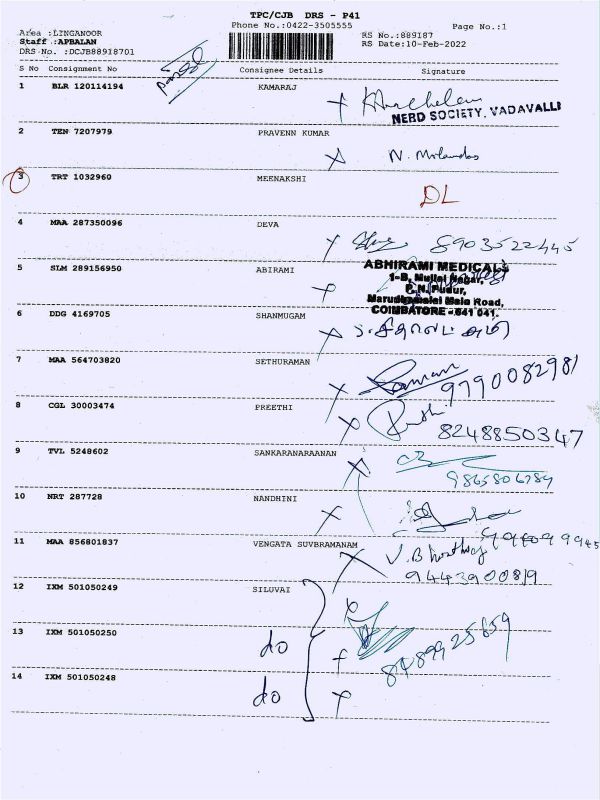 TPC/CJB DRS - P41
Phone No.:0422-3505555
Page No.:1
Area :LINGANOOR
Staff :APBALAN
DRS No. :DCJB88918701
RS No.:889187
RS Date:10-Feb-2022
S No Consignment No Consignee Details Signature
1 BLR 120114194 KAMARAJ
NERD SOCIETY, VADAVALLI
2 TEN 7207979 PRAVENN KUMAR
3 TRT 1032960 MEENAKSHI
DL
4 MAA 287350096 DEVA
8903522445
5 SLM 289156950 ABIRAMI
ABHIRAMI MEDICALS
1-B, Mullai Nagar,
P. N. Pudur,
Marudhamalai Main Road,
COIMBATORE - 641 041.
6 DDG 4169705 SHANMUGAM
7 MAA 564703820 SETHURAMAN
9790082981
8 CGL 30003474 PREETHI
8248850347
9 TVL 5248602 SANKARANARAANAN
9865806789
10 NRT 287728 NANDHINI
11 MAA 856801837 VENGATA SUVBRAMANAM
9443900819
12 IXM 501050249 SILUVAI
13 IXM 501050250 do
8489925659
14 IXM 501050248 do